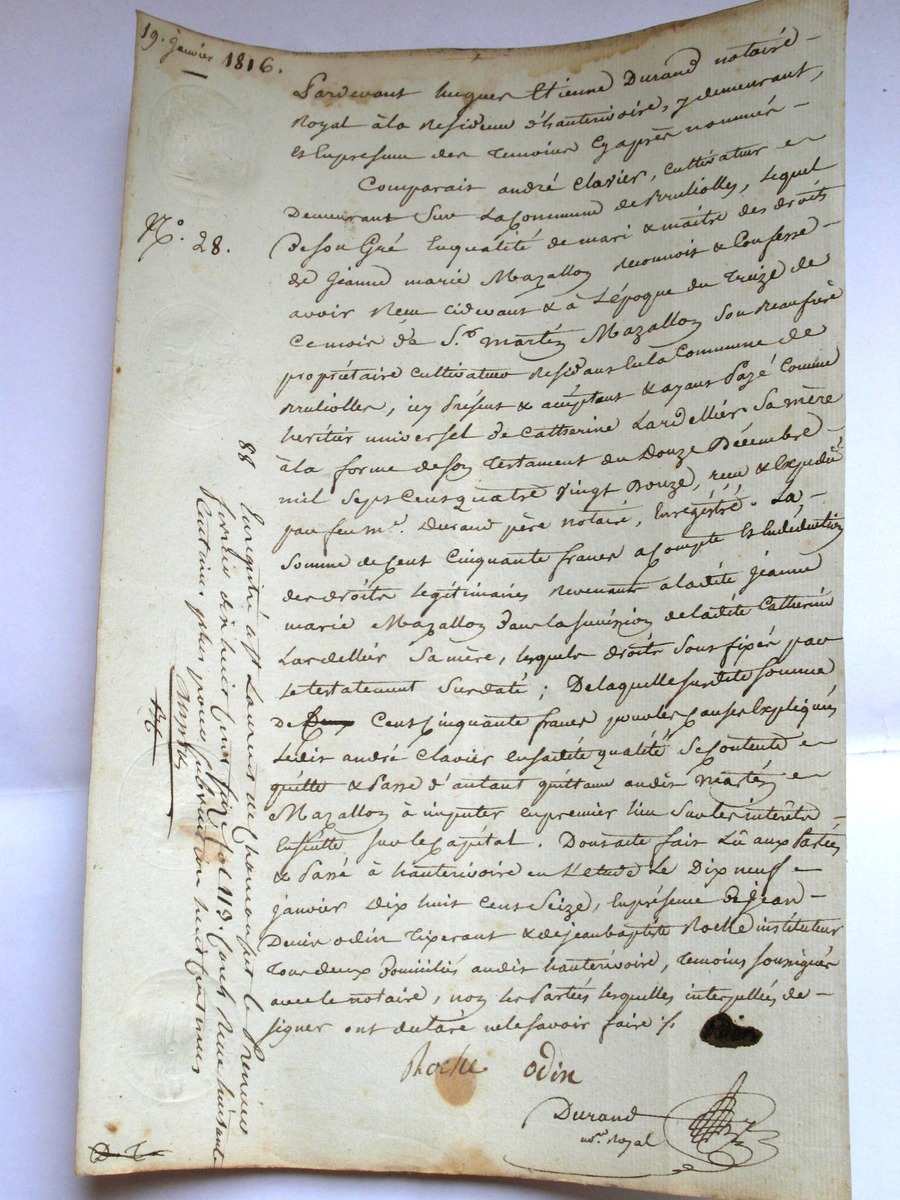 19. janvier 1816.
N.o 28.
Pardevant hugues Etienne Durand notaire
Royal à la Residence d'hauterivoire, y demeurant,
et En presence des Temoins Cy après nommés
Comparait andré Clavier, Cultivateur
Demeurant Sur La Commune de Brullolles, Lequel
de Son Gré En qualité de mari & maitre des droits
de jeanne marie Mazallon reconnoit & Confesse
avoir Recu cidevant & à L'époque du Treize de
Ce mois de S.r martin Mazallon Son Beaufrère
propriétaire Cultivateur Residant En la Commune de
Brullolles, icy présent & acceptant & ayant Payé Comme
heritier universel de Catherine Lardellier Sa mère
à la forme de Son Testament du Douze Décembre
mil Sept Cent quatre vingt Douze, recu & Expedié
par feu m.e Durand père notaire, Enregistré. La
Somme de Cent Cinquante francs acompte Et En déduction
des droits Légitimaires revenant à ladite jeanne
marie Mazallon dans la succession de ladite Catherine
Lardellier Sa mère, lesquels droits Sont fixés par
Le testatement Susdaté ; De laquelle susdite Somme
de Cent Cinquante francs pour les Causes Expliquées
Ledit andré Clavier En sadite qualité Se Contente
quitte & Passe d'autant quittance audit martin
Mazallon à imputer en premier lieu Sur les intérêts
Ensuitte Sur le Capital. Dont acte fait Lû aux Parties
& Passé à hauterivoire en L'etude Le Dix neuf
janvier Dix huit Cent Seize, En présence de jean
Denis odin Tixerant & de jean baptiste Roche instituteur
Tous deux Domiciliés audit hauterivoire, Temoins Soussignés
avec le notaire, non les Parties lesquelles interpellées de
signer ont declaré ne le savoir faire ./.
Roche odin
Durand
no.re Royal
88
Enregistré à S.t Laurent de Chamousset le Premier
fevrier dix huit cent Seize fo. 113.